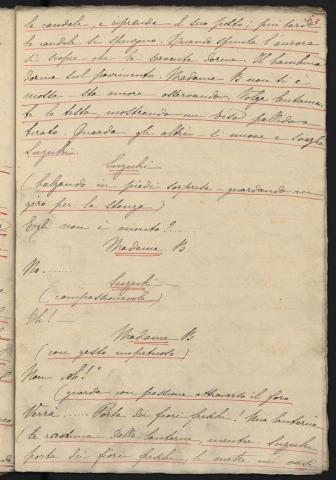 53
le candele, e riprende il suo posto; più tardi
le candele si spengono. Quando spunta l'aurora
si scopre che la servente dorme. Il bambino
dorme sul pavimento. Madame B non si è
mossa sta ancora osservando. Volge lentamen-
te la testa, mostrando un viso pallido e
tirato. Guarda gli altri si muove e sveglia
Suzuki.
Suzuki
(balzando in piedi sorpresa - guardando in
giro per la stanza)
Egli non è venuto?......
Madame B
No.......
Suzuki
(compassionevole)
Oh! —
Madame B
(con gesto impetuoso)
Non "oh!"
(guarda con passione attraverso il foro
Verrà ..... Porta dei fiori freschi! Una lanterna
(la raduna delle lanterne, mentre Suzuki
porta dei fiori freschi, li mette nei vasi